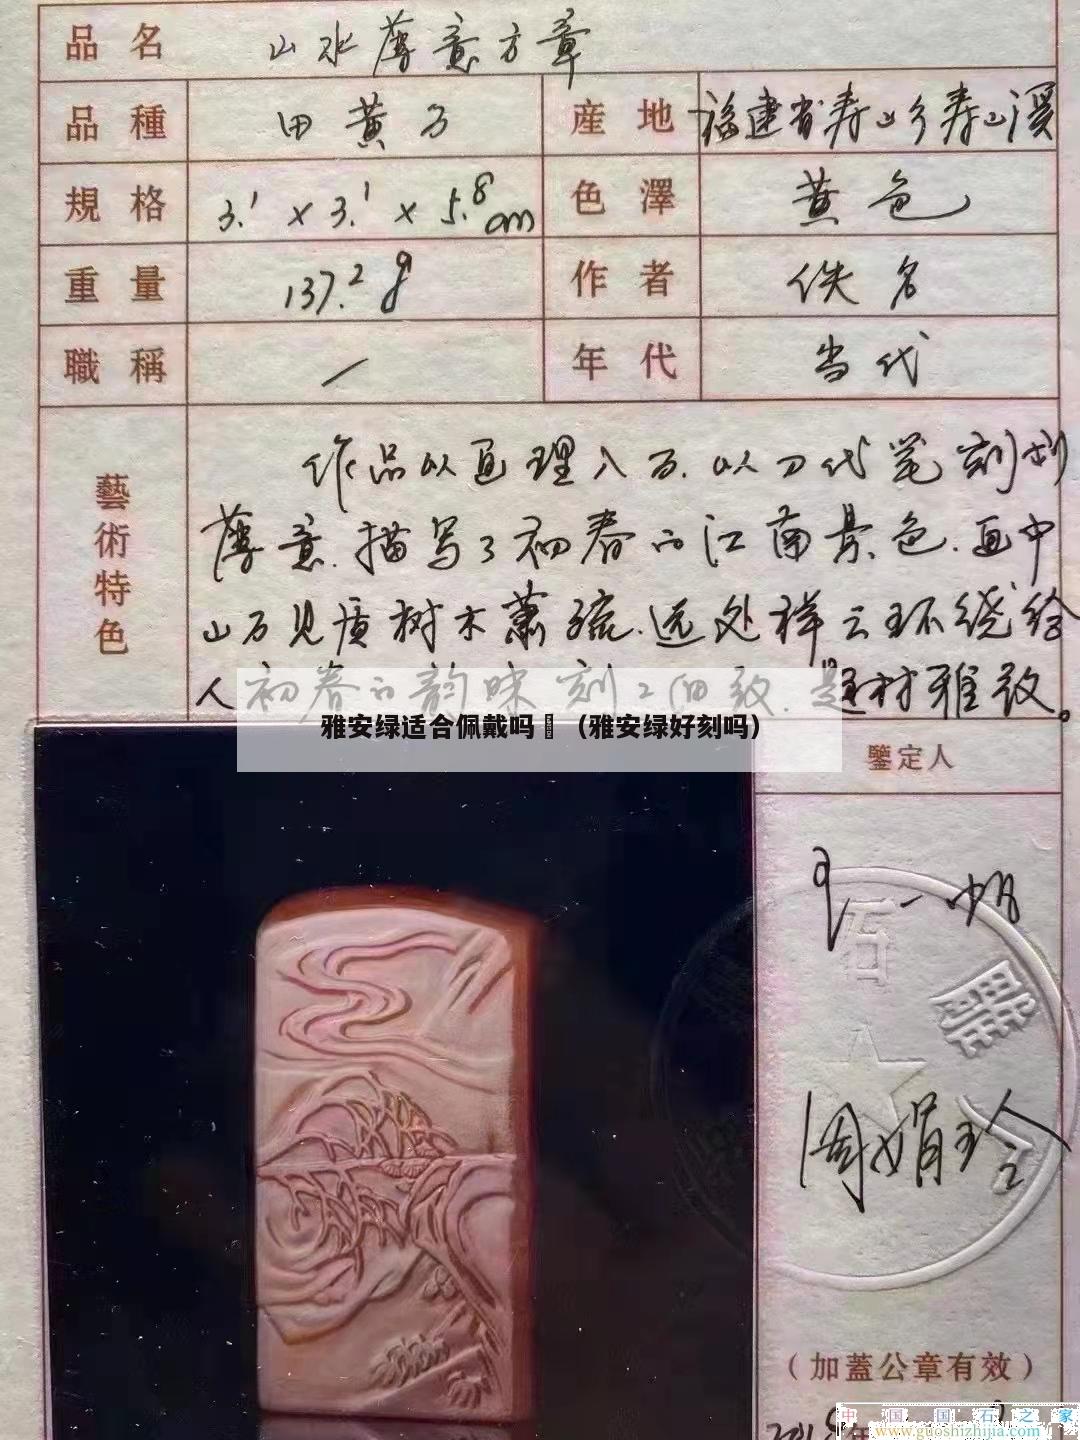 品名 山水薄意方章
品種 田黄石 産地 福建省寿山乡寿山溪
規格 3.1 x 3.1 x 5.8cm 色澤 黄色
重量 137.2g 作者 佚名
職稱 — 年代 当代
藝術特色
作品以画理入石.以刀代笔刻划
薄意.描写了初春的江南景色.画中
山石见质树木萧疏.远处祥云环绕给
人初春的韵味刻工细致.题材雅致。
雅安绿适合佩戴吗 （雅安绿好刻吗）
鑒定人
石
雕
周娟玲
（加蓋公章有效）
年
中国国石之家
www.guoshizhijia.com